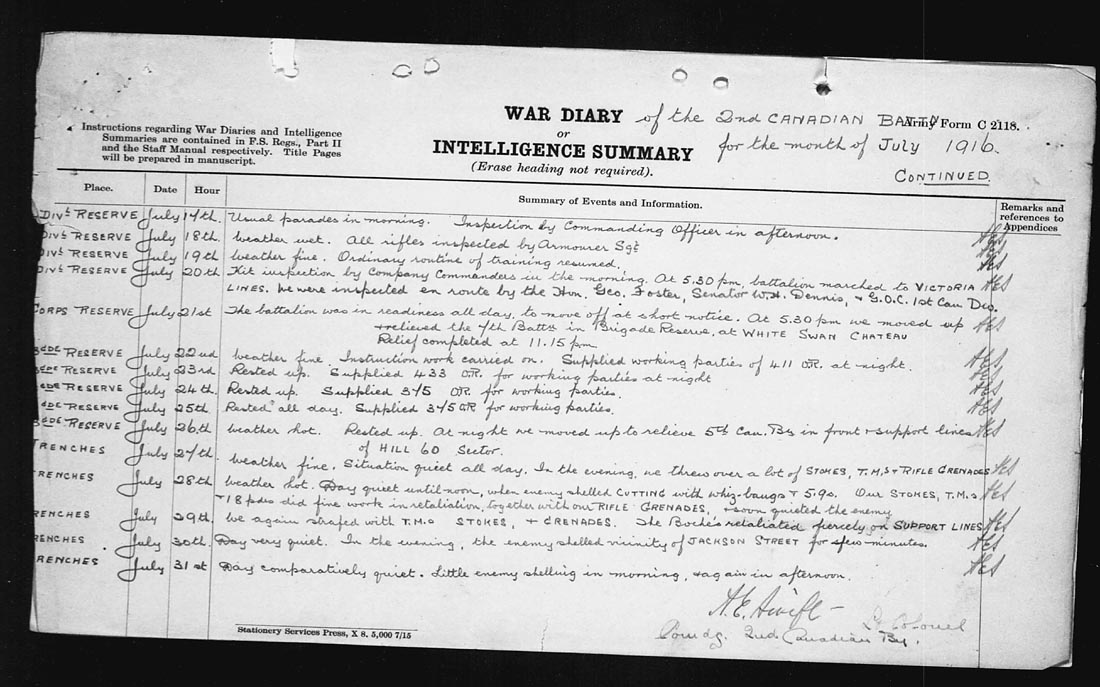 WAR DIARY of the 2nd CANADIAN BATTN Army Form C 2118.
or
INTELLIGENCE SUMMARY for the month of July 1916.
(Erase heading not required).
CONTINUED.
Instructions regarding War Diaries and Intelligence
Summaries are contained in F.S. Regs., Part II
and the Staff Manual respectively. Title Pages
will be prepared in manuscript.
Place. Date Hour Summary of Events and Information. Remarks and
references to
Appendices
DIVL RESERVE July 17th. Usual parades in morning. Inspection by Commanding Officer in afternoon. AES
DIVL RESERVE July 18th. Weather wet. All rifles inspected by Armourer Sgt AES
DIVL RESERVE July 19th Weather fine. Ordinary routine of training resumed. AES
DIVL RESERVE July 20th Kit inspection by Company Commanders in the morning. At 5.30 pm, battalion marched to VICTORIA AES
LINES. We were inspected en route by the Hon. Geo. Foster, Senator W.H. Dennis, & G.O.C. 1st Can Div.
CORPS RESERVE July 21st The battalion was in readiness all day, to move off at short notice. At 5.30 pm we moved up AES
& relieved the 7th Battn in Brigade Reserve, at WHITE SWAN CHATEAU
Relief completed at 11.15 pm
BdDE RESERVE July 22nd Weather fine. Instruction work carried on. Supplied working parties of 411 O.R. at night. AES
BdDE RESERVE July 23rd Rested up. Supplied 433 O.R. for working parties at night AES
BdDE RESERVE July 24th. Rested up. Supplied 375 O.R. for working parties. AES
BdDE RESERVE July 25th Rested all day. Supplied 375 O.R for working parties. AES
BdDE RESERVE July 26th Weather hot. Rested up. At night we moved up to relieve 5th Can. Bn in front & support lines AES
of HILL 60 Sector.
TRENCHES July 27th. Weather fine. Situation quiet all day. In the evening, we threw over a lot of STOKES, T.M.s & RIFLE GRENADES AES
TRENCHES July 28th Weather hot. Day quiet until noon, when enemy shelled CUTTING with whiz-bangs & 5.9s. Our STOKES, T.M.s AES
& 18 pdrs did fine work in retaliation, together with our RIFLE GRENADES, & soon quieted the enemy
TRENCHES July 29th. We again strafed with T.M.s STOKES, & GRENADES. The Boche's retaliated fiercely on SUPPORT LINES AES
TRENCHES July 30th. Day very quiet. In the evening, the enemy shelled vicinity of JACKSON STREET for few minutes. AES
TRENCHES July 31st Day comparatively quiet. Little enemy shelling in morning, & again in afternoon. AES
A.E. Swift
Lt Colonel
Comdg. 2nd Canadian Bn.
Stationery Services Press, X 8. 5,000 7/15